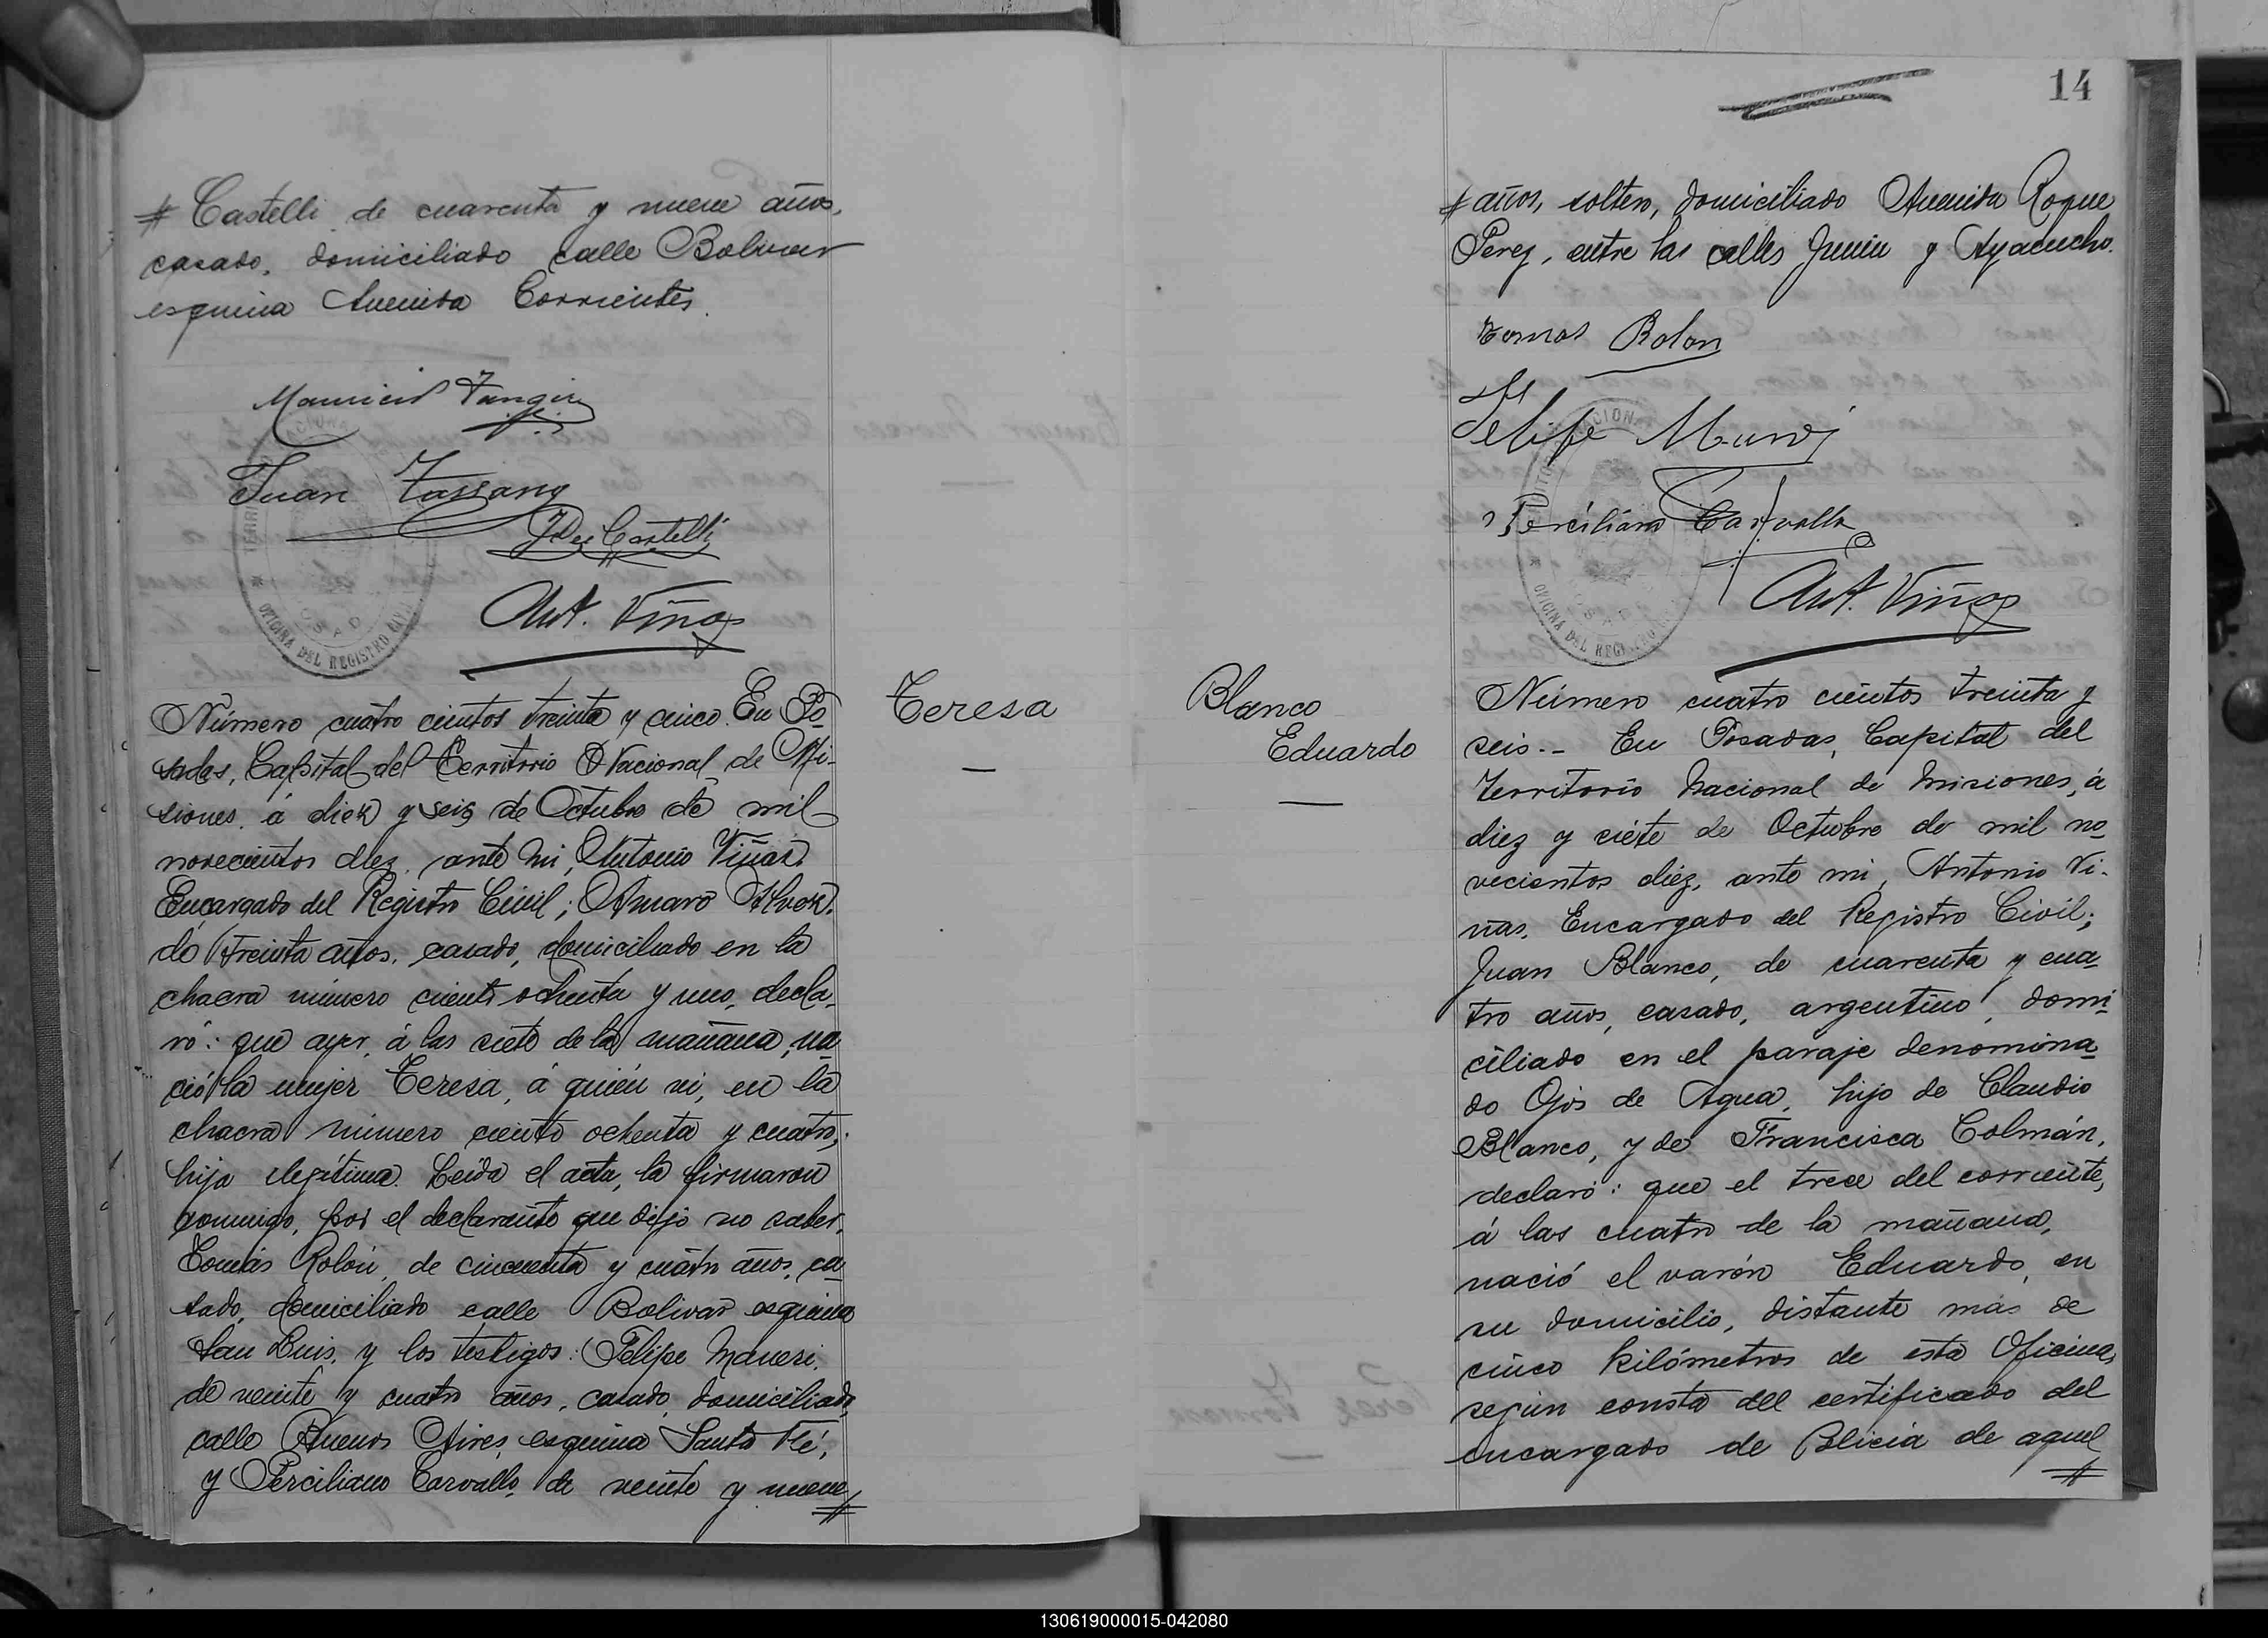 # Castelli de cuarenta y nueve años,
casado, domiciliado calle Bolivar
esquina Avenida Corrientes.
Mauricio
Juan
Castelli
Ant. Viñas
OFICINA DEL REGISTRO CIVIL
Número cuatro cientos treinta y cinco. En Po
sadas, Capital del Territorio Nacional de Mi-
siones, á diez y seis de Octubre de mil
novecientos diez, ante mi, Antonio Viñas,
Encargado del Registro Civil; Amaro
treinta años, casado, domiciliado en la
chacra número ciento ochenta y uno, decla-
ró: que ayer, á las siete de la mañana, na
ció la mujer Teresa, á quién vi, en la
chacra número ciento ochenta y cuatro,
hija ilegítima. Leída el acta, la firmaron
conmigo, por el declarante que dijo no saber,
Tomás Rolón, de cincuenta y cuatro años, ca
sado, domiciliado calle Bolivar esquina
San Luis, y los testigos: Felipe
de veinte y cuatro años, casado, domiciliado,
calle Buenos Aires, esquina Santa Fé,
y Perciliano Carvallo, de veinte y nueve
#
Teresa
14
# años, soltero, domiciliado Avenida Roque
Perez, entre las calles Junin y Ayacucho.
Tomas Rolon
Felipe
Perciliano Carvallo
Ant. Viñas
OFICINA DEL REGISTRO
Blanco
Eduardo
Número cuatro cientos treinta y
seis.- En Posadas, Capital del
Territorio Nacional de Misiones, á
diez y siete de Octubre de mil no
vecientos diez, ante mi, Antonio Vi-
ñas, Encargado del Registro Civil;
Juan Blanco, de cuarenta y cua
tro años, casado, argentino, domi
ciliado en el paraje denomina
do Ojos de Agua, hijo de Claudio
Blanco, y de Francisca Colmán,
declaró: que el trece del corriente,
á las cuatro de la mañana,
nació el varón Eduardo, en
su domicilio, distante más de
cinco kilómetros de esta Oficina,
según consta del certificado del
encargado de Policía de aquel
#
130619000015-042080